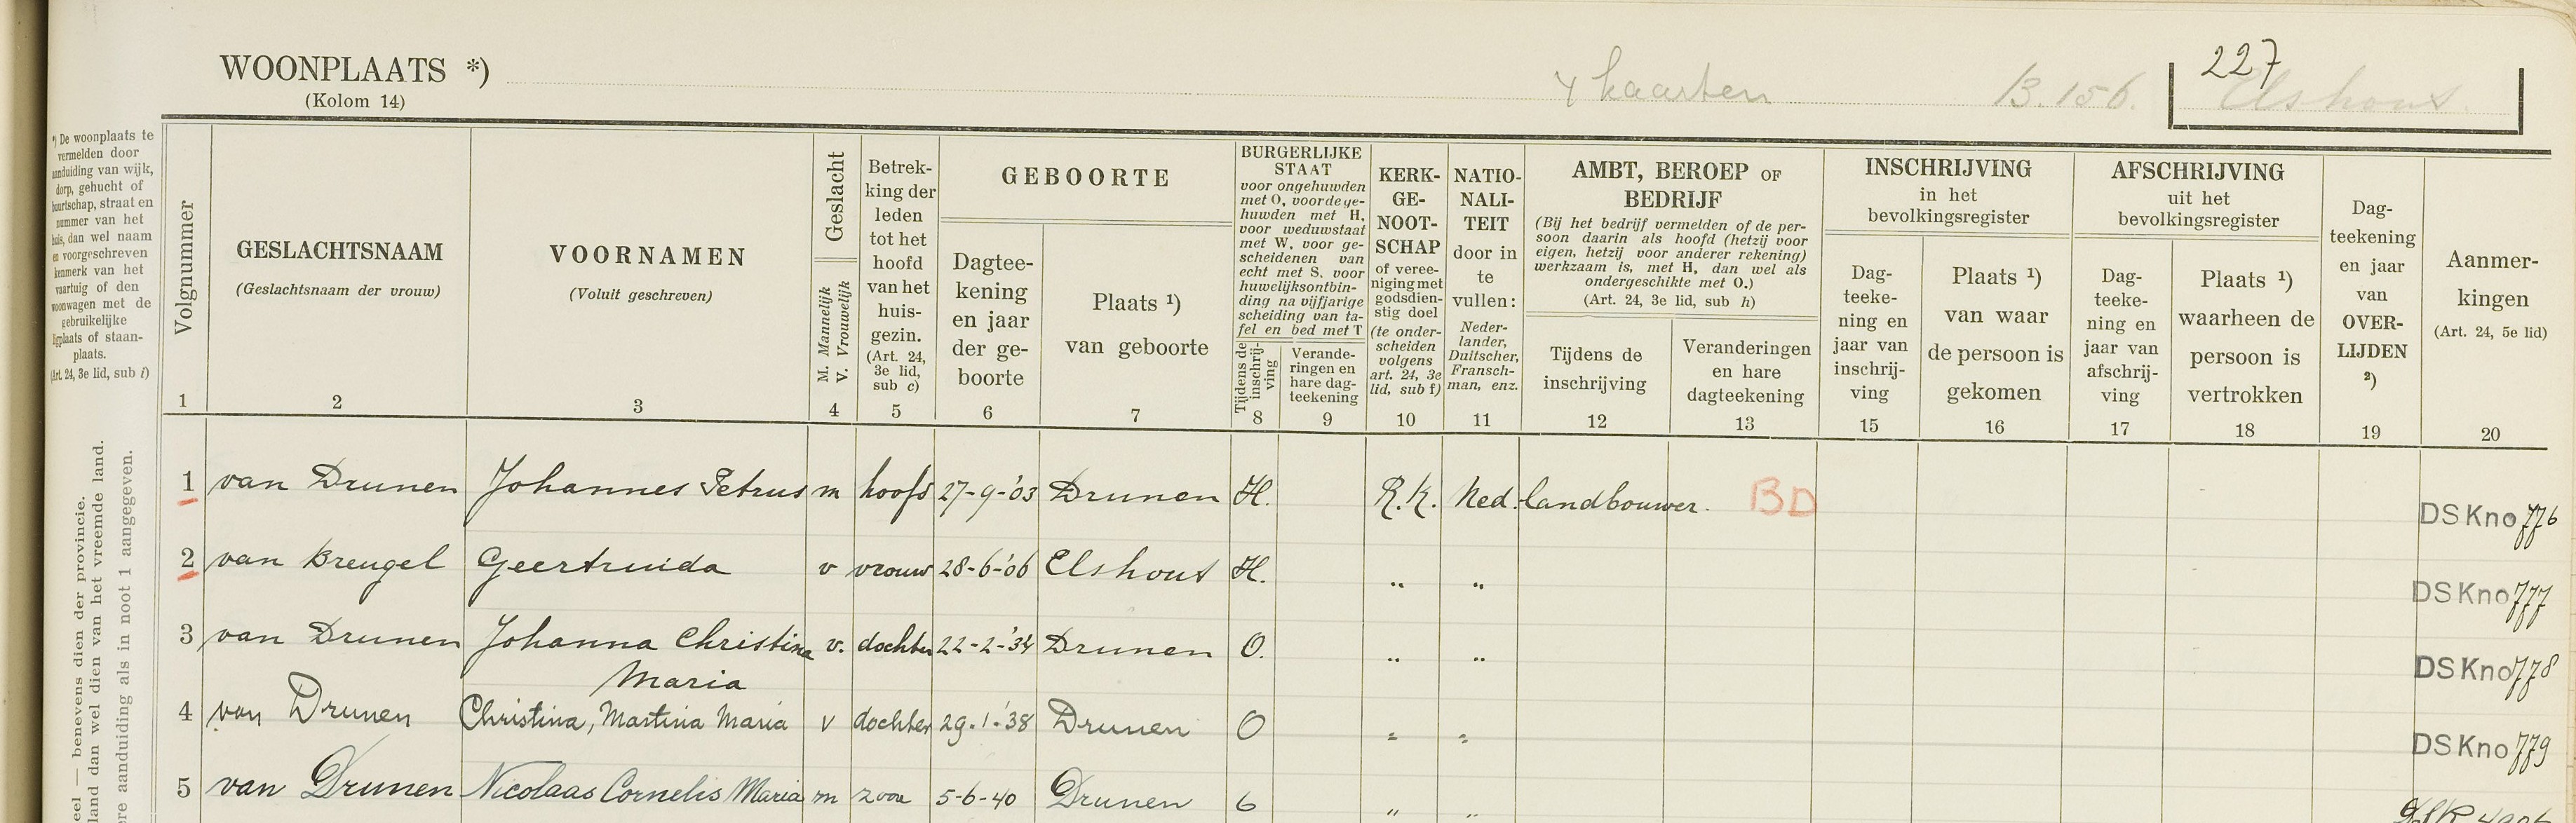 WOONPLAATS *)
(Kolom 14)
4 kaarten
B. 156.
227
Elshout
*) De woonplaats te
vermelden door
aanduiding van wijk,
dorp, gehucht of
buurtschap, straat en
nummer van het
huis, dan wel naam
en voorgeschreven
kenmerk van het
vaartuig of den
woonwagen met de
gebruikelijke
ligplaats of staan-
plaats.
(Art. 24, 3e lid, sub i)
eel — benevens dien der provincie.
land dan wel dien van het vreemde land.
ere aanduiding als in noot 1 aangegeven.
Volgnummer
1
GESLACHTSNAAM
(Geslachtsnaam der vrouw)
2
VOORNAMEN
(Voluit geschreven)
3
Geslacht
M. Mannelijk
V. Vrouwelijk
4
Betrek-
king der
leden
tot het
hoofd
van het
huis-
gezin.
(Art. 24,
3e lid,
sub c)
5
GEBOORTE
Dagtee-
kening
en jaar
der ge-
boorte
6
Plaats ¹)
van geboorte
7
BURGERLIJKE
STAAT
voor ongehuwden
met O, voor de ge-
huwden met H,
voor weduwstaat
met W, voor ge-
scheidenen van
echt met S. voor
huwelijksontbin-
ding na vijfjarige
scheiding van ta-
fel en bed met T
Tijdens de
inschrij-
ving
8
Verande-
ringen en
hare dag-
teekening
9
KERK-
GE-
NOOT-
SCHAP
of veree-
niging met
godsdien-
stig doel
(te onder-
scheiden
volgens
art. 24, 3e
lid, sub f)
10
NATIO-
NALI-
TEIT
door in
te
vullen:
Neder-
lander,
Duitscher,
Fransch-
man, enz.
11
AMBT, BEROEP OF
BEDRIJF
(Bij het bedrijf vermelden of de per-
soon daarin als hoofd (hetzij voor
eigen, hetzij voor anderer rekening)
werkzaam is, met H, dan wel als
ondergeschikte met O.)
(Art. 24, 3e lid, sub h)
Tijdens de
inschrijving
12
Veranderingen
en hare
dagteekening
13
INSCHRIJVING
in het
bevolkingsregister
Dag-
teeke-
ning en
jaar van
inschrij-
ving
15
Plaats ¹)
van waar
de persoon is
gekomen
16
AFSCHRIJVING
uit het
bevolkingsregister
Dag-
teeke-
ning en
jaar van
afschrij-
ving
17
Plaats ¹)
waarheen de
persoon is
vertrokken
18
Dag-
teekening
en jaar
van
OVER-
LIJDEN
²)
19
Aanmer-
kingen
(Art. 24, 5e lid)
20
1 van Drunen Johannes Petrus m hoofd 27-9-'03 Drunen H. R.K. Ned. landbouwer. BD DSKno 776
2 van Breugel Geertruida v vrouw 28-6-'06 Elshout H. " " DSKno 777
3 van Drunen Johanna Christina v. dochter 22-2-'34 Drunen O. " " DSKno 778
Maria
4 van Drunen Christina, Martina Maria v dochter 29-1-'38 Drunen O " " DSKno 779
5 van Drunen Nicolaas Cornelis Maria m zoon 5-6-40 Drunen O " "